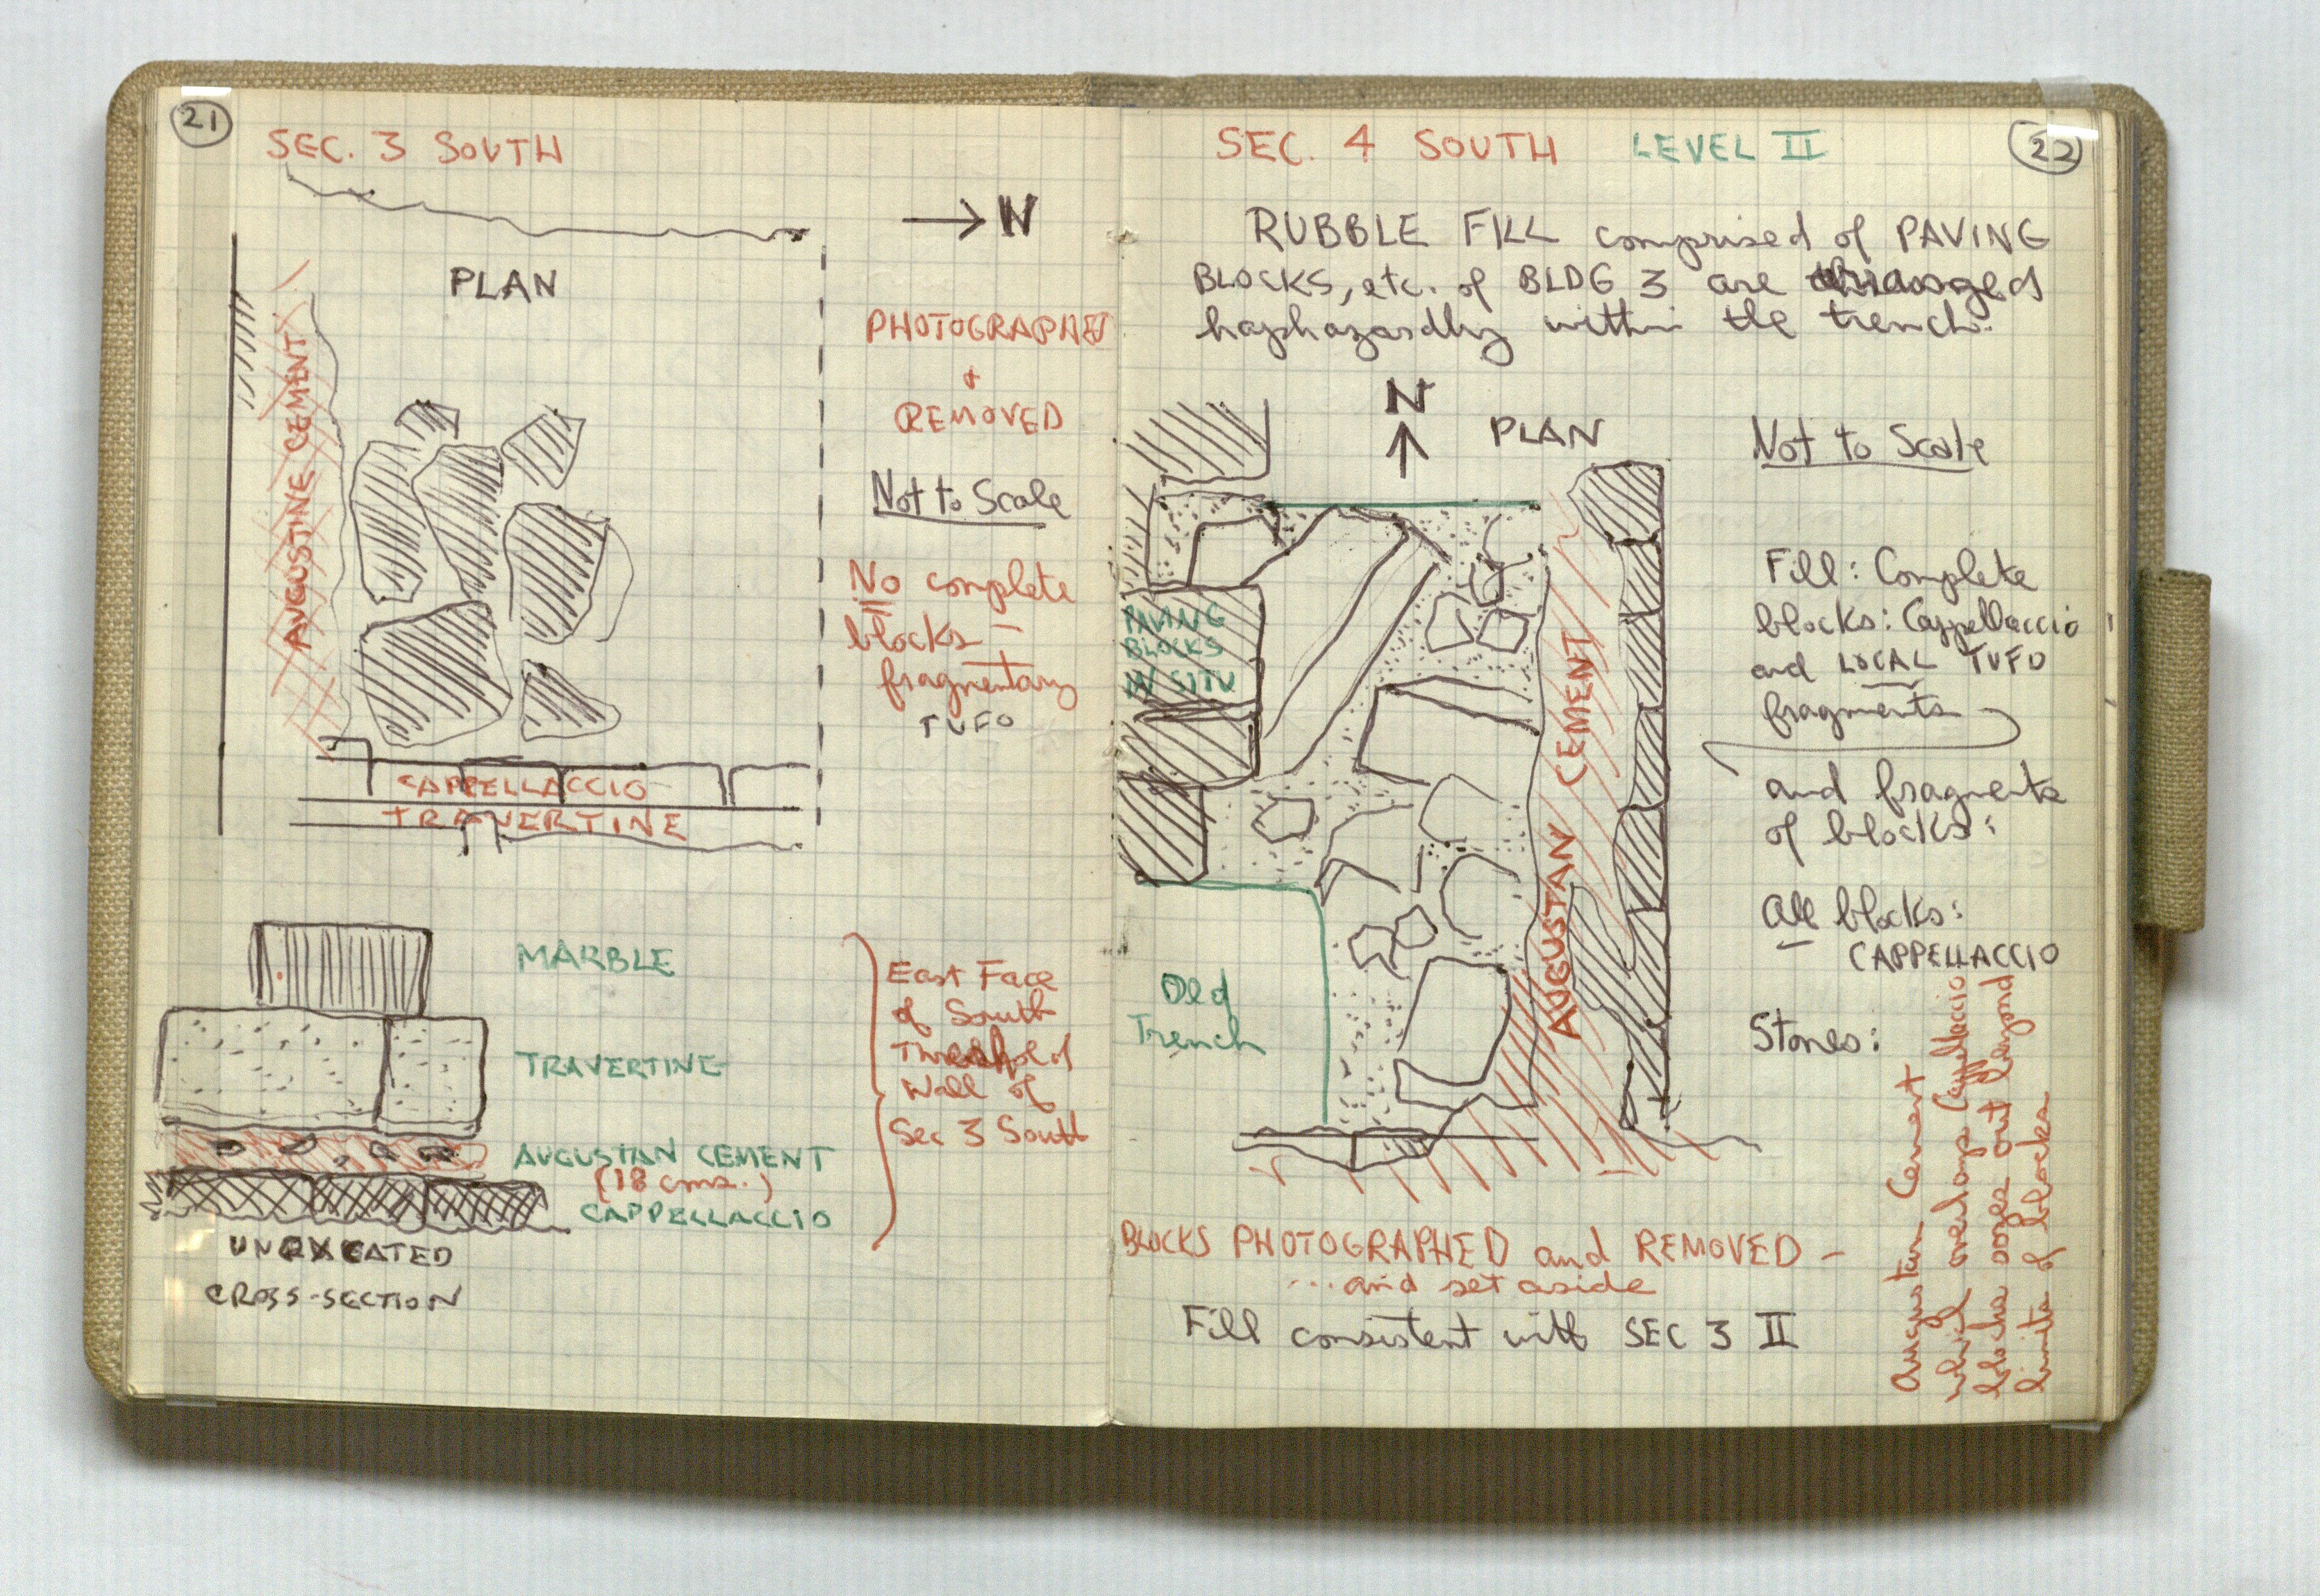 21
SEC. 3 SOUTH
→ N
PLAN
AUGUSTINE CEMENT
PHOTOGRAPHED
+
REMOVED
Not to Scale
No complete
blocks –
fragmentary
TUFO
CAPPELLACCIO
TRAVERTINE
MARBLE
TRAVERTINE
AUGUSTAN CEMENT
(18 cms.)
CAPPELLACCIO
East Face
of South
Threshold
Wall of
Sec 3 South
CROSS-SECTION
22
SEC. 4 SOUTH LEVEL II
RUBBLE FILL comprised of PAVING
BLOCKS, etc. of BLDG 3 are arranged
haphazardly within the trench.
N
PLAN
Not to Scale
PAVING
BLOCKS
IN SITU
AUGUSTAN CEMENT
Old
Trench
Fill: Complete
blocks: Cappellaccio
and LOCAL TUFO
fragments
and fragments
of blocks:
All blocks:
CAPPELLACCIO
Stones:
Augustan Cement
which overlaps Cappellaccio
blocks oozes out beyond
limits of blocks
BLOCKS PHOTOGRAPHED and REMOVED –
...and set aside
Fill consistent with SEC 3 II